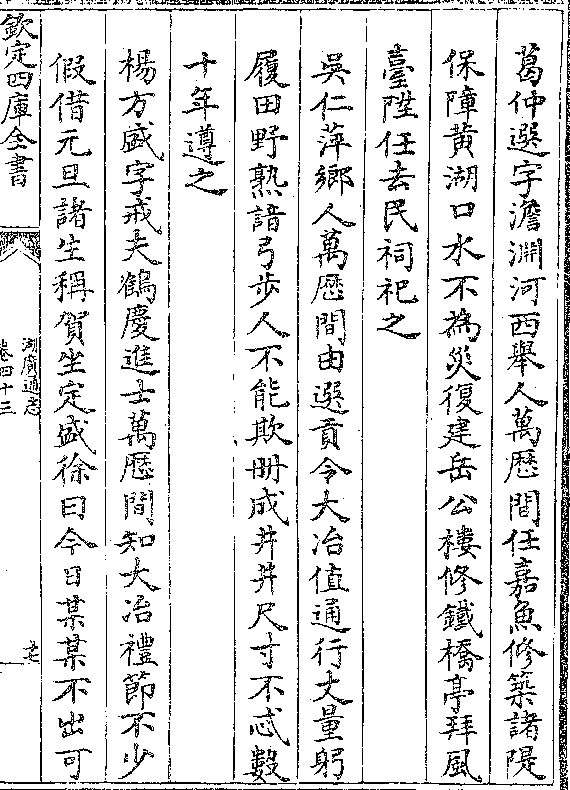 葛仲選字澹淵河西舉人萬厯間任嘉魚修築諸隄
保障黄湖口水不為災復建岳公樓修鐵橋亭拜風
臺陞任去民祠祀之
吳仁萍鄉人萬厯間由選貢令大冶值通行丈量躬
履田野熟諳弓步人不能欺册成井井尺寸不忒數
十年遵之
楊方盛字戒夫鶴慶進士萬厯間知大冶禮節不少
假借元旦諸生稱賀坐定盛徐曰今日某某不出可
欽定四庫全書
湖廣通志
卷四十三